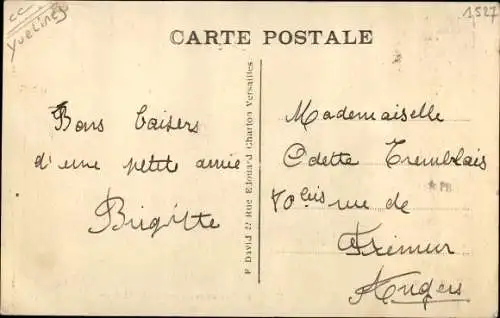 cc
Yvelines
1527
CARTE POSTALE
Bons baisers
d'une petite amie
Brigitte
P. David 22 Rue Edouard Charton Versailles
Mademoiselle
Odette Tremblais
80 bis rue de
Frémur
Angers
PB